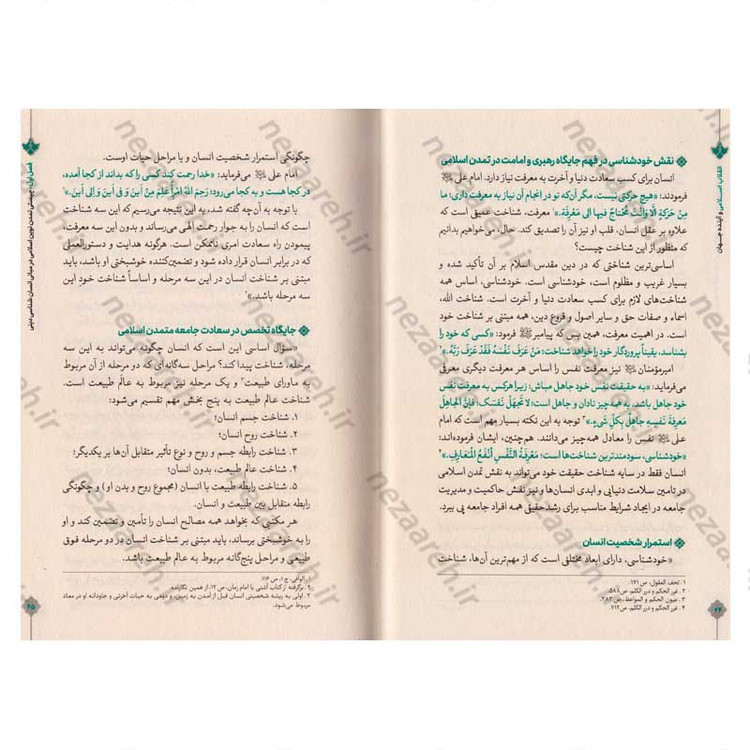 انقلاب اسلامی و آینده جهان
نقش خودشناسی در فهم جایگاه رهبری و امامت در تمدن اسلامی
انسان برای کسب سعادت دنیا و آخرت به معرفت نیاز دارد. امام علی
فرمودند: «هیچ حرکتی نیست، مگر آن‌که تو در انجام آن نیاز به معرفت داری؛ ما
مِنْ حَرَکَةٍ اِلّا وَأنْتَ مُحْتاجٌ فیها اِلی مَعْرِفَةٍ.»۱ معرفت، شناخت عمیقی است که
علاوه بر عقل انسان، قلب او نیز آن را تصدیق کند. حال، می‌خواهیم بدانیم
که منظور از این شناخت چیست؟
اساسی‌ترین شناختی که در دین مقدس اسلام بر آن تأکید شده و
بسیار غریب و مظلوم است، خودشناسی است. خودشناسی، اساس همه
شناخت‌های لازم برای کسب سعادت دنیا و آخرت است. شناخت الله،
اسماء و صفات حق و سایر اصول و فروع دین، همه مبتنی بر شناخت خود
است. در اهمیت معرفت، همین بس که پیامبر فرمود: «کسی که خود را
بشناسد، یقیناً پروردگار خود را خواهد شناخت؛ مَنْ عَرَفَ نَفْسَهُ فَقَدْ عَرَفَ رَبَّهُ.»۲
امیرمؤمنان نیز معرفت نفس را اساس هر معرفت دیگری معرفی
می‌فرماید: «به حقیقت نفس خود جاهل مباش؛ زیرا هرکس به معرفت نفس
خود جاهل باشد، به همه‌چیز نادان و جاهل است؛ لا تَجْهَلْ نَفْسَکَ، فَإنَّ الجاهِلَ
مَعْرِفَةَ نَفْسِهِ جاهِلٌ بِکُلِّ شَیْءٍ.»۳ توجه به این نکته بسیار مهم است که امام
علی نفس را معادل همه‌چیز می‌دانند. هم‌چنین، ایشان فرموده‌اند:
«خودشناسی، سودمندترین شناخت‌ها است؛ مَعْرِفَةُ النَّفْسِ أنْفَعُ المَعارِفِ.»۴
انسان فقط در سایه شناخت حقیقت خود می‌تواند به نقش تمدن اسلامی
در تأمین سلامت دنیایی و ابدی انسان‌ها و نیز نقش حاکمیت و مدیریت
جامعه در ایجاد شرایط مناسب برای رشد حقیقی همه افراد جامعه پی ببرد.
استمرار شخصیت انسان
«خودشناسی، دارای ابعاد مختلفی است که از مهم‌ترین آن‌ها، شناخت
۱. تحف العقول، ص ۱۷۱.
۲. غرر الحکم و درر الکلم، ص ۵۸۸.
۳. عیون الحکم و المواعظ، ص ۳۸۳.
۴. غرر الحکم و درر الکلم، ص ۷۱۲.
۴۴
چگونگی استمرار شخصیت انسان و یا مراحل حیات اوست.
امام علی می‌فرماید: «خدا رحمت کند کسی را که بداند از کجا آمده،
در کجا هست و به کجا می‌رود؛ رَحِمَ اللهُ امْرَأً عَلِمَ مِنْ أینَ وَ فی أینَ وَ إلی أینَ.»۱
با توجه به آن‌چه گفته شد، به این نتیجه می‌رسیم که این سه شناخت
است که انسان را به جوار رحمت الهی می‌رساند و بدون این سه معرفت،
پیمودن راه سعادت امری ناممکن است. هرگونه هدایت و دستورالعملی
که در برابر انسان قرار داده شود و تضمین‌کننده خوشبختی او باشد، باید
مبتنی بر شناخت انسان در این سه مرحله و اساساً شناخت خودِ این
سه مرحله باشد.»۲
جایگاه تخصص در سعادت جامعه متمدن اسلامی
«سؤال اساسی این است که انسان چگونه می‌تواند به این سه
مرحله، شناخت پیدا کند؟ مراحل سه‌گانه‌ای که دو مرحله از آن مربوط
به ماورای طبیعت۳ و یک مرحله نیز مربوط به عالم طبیعت است.
شناخت عالم طبیعت به پنج بخش مهم تقسیم می‌شود:
۱. شناخت جسم انسان؛
۲. شناخت روح انسان؛
۳. شناخت رابطه جسم و روح و نوع تأثیر متقابل آن‌ها بر یکدیگر؛
۴. شناخت عالم طبیعت، بدون انسان؛
۵. شناخت رابطه طبیعت با انسان (مجموع روح و بدن او) و چگونگی
رابطه متقابل بین طبیعت و انسان.
هر مکتبی که بخواهد همه مصالح انسان را تأمین و تضمین کند و او
را به خوشبختی برساند، باید مبتنی بر شناخت انسان در دو مرحله فوق
طبیعی و مراحل پنج‌گانه مربوط به عالم طبیعت باشد.
۱. الوافی، ج ۱، ص ۱۱۶.
۲. برگرفته از کتاب آشتی با امام زمان، ص ۱۲، از همین نگارنده.
۳. اولی به ریشه شخصیتی انسان قبل از آمدن به زمین، و دومی به حیات آخرتی و جاودانه او در معاد
مربوط می‌شود.
فصل اول: چیستی تمدن نوین اسلامی در مبانی انسان شناسی دینی
۴۵
nezaareh.ir